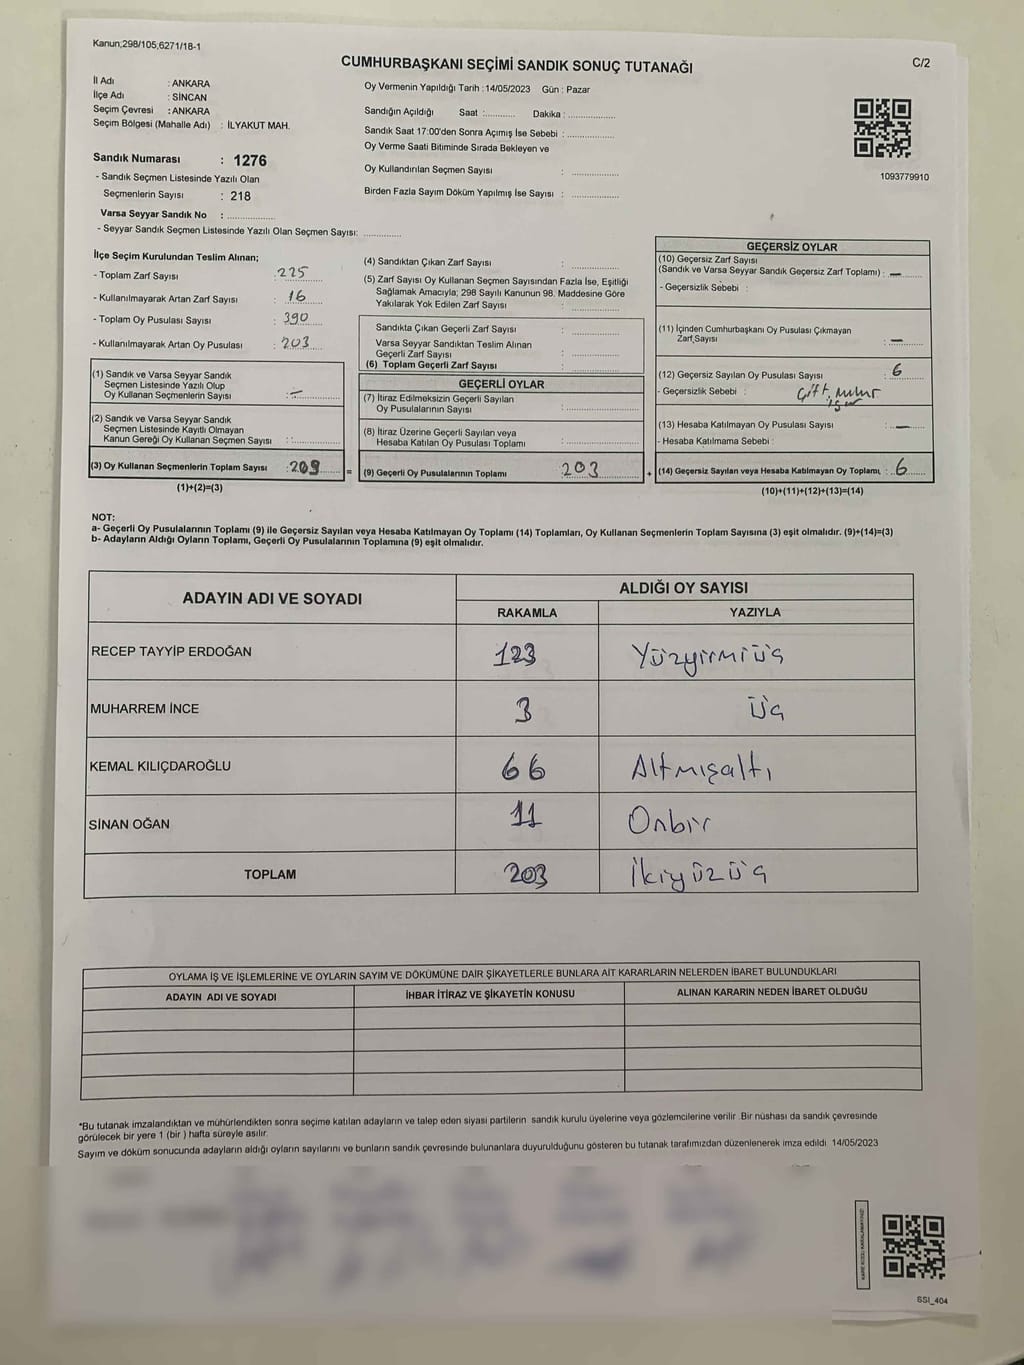 Kanun;298/105,6271/18-1
CUMHURBAŞKANI SEÇİMİ SANDIK SONUÇ TUTANAĞI
C/2
İl Adı : ANKARA
İlçe Adı : SİNCAN
Seçim Çevresi : ANKARA
Seçim Bölgesi (Mahalle Adı) : İLYAKUT MAH.
Sandık Numarası : 1276
- Sandık Seçmen Listesinde Yazılı Olan
Seçmenlerin Sayısı : 218
Varsa Seyyar Sandık No : ....................
- Seyyar Sandık Seçmen Listesinde Yazılı Olan Seçmen Sayısı: ..............
Oy Vermenin Yapıldığı Tarih : 14/05/2023 Gün : Pazar
Sandığın Açıldığı Saat :............ Dakika : .................
Sandık Saat 17:00'den Sonra Açımış İse Sebebi : .................
Oy Verme Saati Bitiminde Sırada Bekleyen ve
Oy Kullandırılan Seçmen Sayısı : .................
Birden Fazla Sayım Döküm Yapılmış İse Sayısı : .................
1093779910
İlçe Seçim Kurulundan Teslim Alınan;
- Toplam Zarf Sayısı : 225
- Kullanılmayarak Artan Zarf Sayısı : 16
- Toplam Oy Pusulası Sayısı : 390
- Kullanılmayarak Artan Oy Pusulası : 203
(1) Sandık ve Varsa Seyyar Sandık
Seçmen Listesinde Yazılı Olup
Oy Kullanan Seçmenlerin Sayısı : —
(2) Sandık ve Varsa Seyyar Sandık
Seçmen Listesinde Kayıtlı Olmayan
Kanun Gereği Oy Kullanan Seçmen Sayısı : ................
(3) Oy Kullanan Seçmenlerin Toplam Sayısı : 209 =
(1)+(2)=(3)
(4) Sandıktan Çıkan Zarf Sayısı : .................
(5) Zarf Sayısı Oy Kullanan Seçmen Sayısından Fazla İse, Eşitliği
Sağlamak Amacıyla; 298 Sayılı Kanunun 98. Maddesine Göre
Yakılarak Yok Edilen Zarf Sayısı : .................
Sandıkta Çıkan Geçerli Zarf Sayısı : .................
Varsa Seyyar Sandıktan Teslim Alınan
Geçerli Zarf Sayısı : .................
(6) Toplam Geçerli Zarf Sayısı : .................
GEÇERLİ OYLAR
(7) İtiraz Edilmeksizin Geçerli Sayılan
Oy Pusulalarının Sayısı : .................
(8) İtiraz Üzerine Geçerli Sayılan veya
Hesaba Katılan Oy Pusulası Toplamı : .................
(9) Geçerli Oy Pusulalarının Toplamı : 203 +
GEÇERSİZ OYLAR
(10) Geçersiz Zarf Sayısı
(Sandık ve Varsa Seyyar Sandık Geçersiz Zarf Toplamı) : —
- Geçersizlik Sebebi :
(11) İçinden Cumhurbaşkanı Oy Pusulası Çıkmayan
Zarf Sayısı : —
(12) Geçersiz Sayılan Oy Pusulası Sayısı : 6
- Geçersizlik Sebebi : Çift
(13) Hesaba Katılmayan Oy Pusulası Sayısı : —
- Hesaba Katılmama Sebebi :
(14) Geçersiz Sayılan veya Hesaba Katılmayan Oy Toplamı, : 6
(10)+(11)+(12)+(13)=(14)
NOT:
a- Geçerli Oy Pusulalarının Toplamı (9) ile Geçersiz Sayılan veya Hesaba Katılmayan Oy Toplamı (14) Toplamları, Oy Kullanan Seçmenlerin Toplam Sayısına (3) eşit olmalıdır. (9)+(14)=(3)
b- Adayların Aldığı Oyların Toplamı, Geçerli Oy Pusulalarının Toplamına (9) eşit olmalıdır.
ADAYIN ADI VE SOYADI
ALDIĞI OY SAYISI
RAKAMLA YAZIYLA
RECEP TAYYİP ERDOĞAN 123 Yüzyirmiüç
MUHARREM İNCE 3 Üç
KEMAL KILIÇDAROĞLU 66 Altmışaltı
SİNAN OĞAN 11 Onbir
TOPLAM 203 İkiyüzüç
OYLAMA İŞ VE İŞLEMLERİNE VE OYLARIN SAYIM VE DÖKÜMÜNE DAİR ŞİKAYETLERLE BUNLARA AİT KARARLARIN NELERDEN İBARET BULUNDUKLARI
ADAYIN ADI VE SOYADI İHBAR İTİRAZ VE ŞİKAYETİN KONUSU ALINAN KARARIN NEDEN İBARET OLDUĞU
*Bu tutanak imzalandıktan ve mühürlendikten sonra seçime katılan adayların ve talep eden siyasi partilerin sandık kurulu üyelerine veya gözlemcilerine verilir .Bir nüshası da sandık çevresinde
görülecek bir yere 1 (bir ) hafta süreyle asılır.
Sayım ve döküm sonucunda adayların aldığı oyların sayılarını ve bunların sandık çevresinde bulunanlara duyurulduğunu gösteren bu tutanak tarafımızdan düzenlenerek imza edildi 14/05/2023
KARE KODU KARALAMAYINIZ!
SSI_404